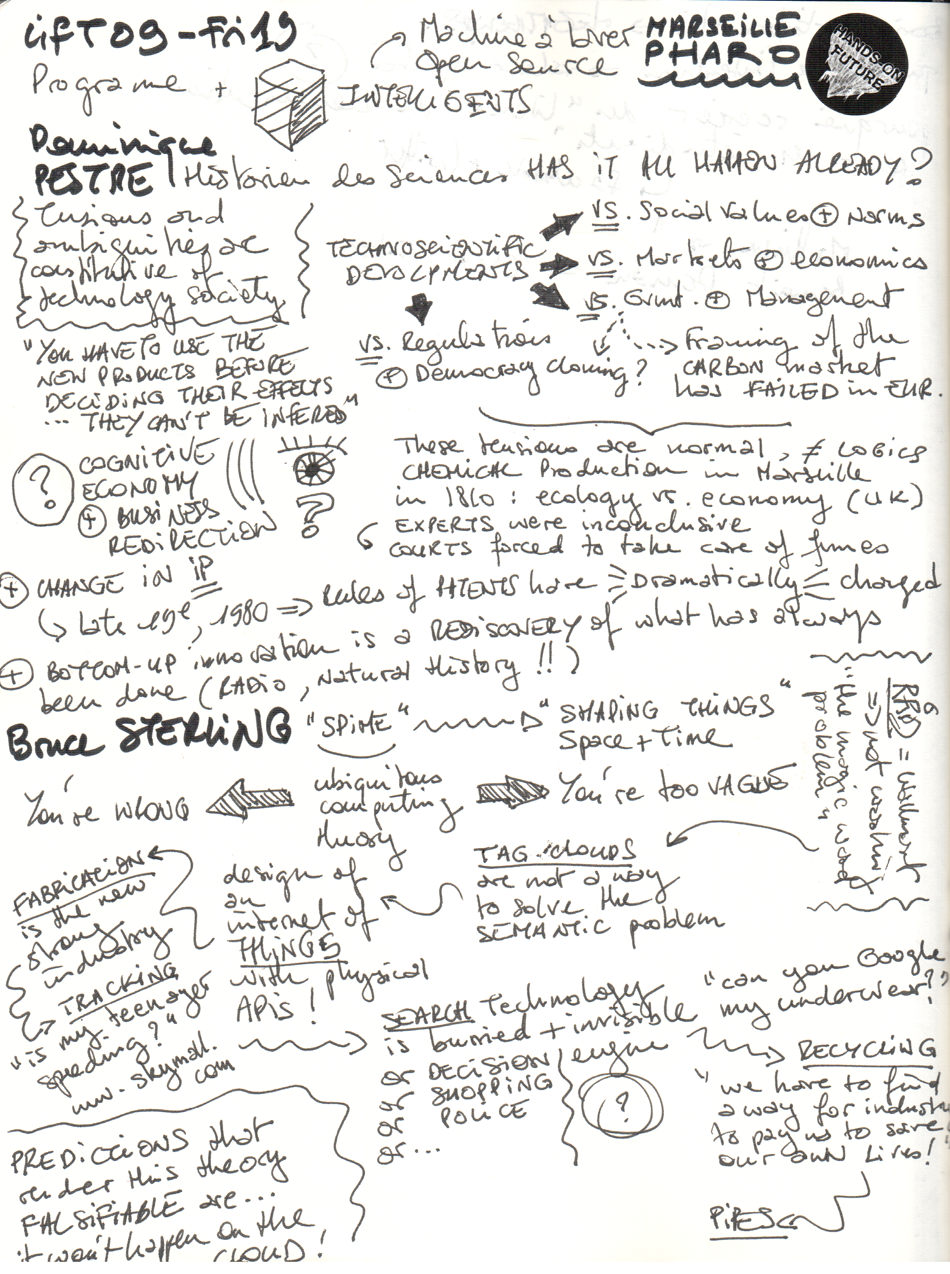 LiFT09 - Fri 19
Programe +
Machine à laver
Open Source
INTELLIGENTS
MARSEILLE
PHARO
HANDS-ON
FUTURE
Dominique
PESTRE | Historien des Sciences HAS IT ALL HAPPEN ALREADY?
Tensions and
ambiguities are
constitutive of
technology society
TECHNOSCIENTIFIC
DEVELPMENTS
VS. Social Values + Norms
VS. Markets + economics
VS. Grmt. + Management
VS. Regulations
+ Democracy cloning?
Framing of the
CARBON market
has FAILED in EUR.
"YOU HAVE TO USE THE
NEW PRODUCTS BEFORE
DECIDING THEIR EFFECTS
... THEY CAN'T BE INFERED"
? COGNITIVE
ECONOMY
+ BUSINESS
REDIRECTION
?
These tensions are normal, ≠ LOGICS
CHEMICAL Production in Marseille
in 1810 : ecology vs. economy (UK)
EXPERTS were inconclusive
COURTS forced to take care of fumes
+ CHANGE IN IP
Late 19e, 1980 ⇒ Rules of PATENTS have Dramatically changed
+ BOTTOM-UP innovation is a REDISCOVERY of what has always
been done (RADIO, Natural History !!)
Bruce STERLING "SPIME" "SHAPING THINGS"
Space + Time
RFID = Wallmart
=> not working
"the magic word
problem"
You're WRONG
ubiquitous
computing
theory
You're too VAGUE
TAG clouds
are not a way
to solve the
SEMANTIC problem
design of
an
internet of
THINGS
with physical
APIs!
FABRICATION
is the new
strong
industry
TRACKING
"is my teenager
speeding?"
www.skymall.
com
SEARCH Technology
is burried + invisible
engine
or DECISION
or SHOPPING
or POLICE
or ...
?
"can you Google
my underwear?"
RECYCLING
"we have to find
a way for industr
to pay us to save
our own Lives!
PIPES
PREDICTIONS that
render this theory
FALSIFIABLE are...
it won't happen on the
CLOUD!